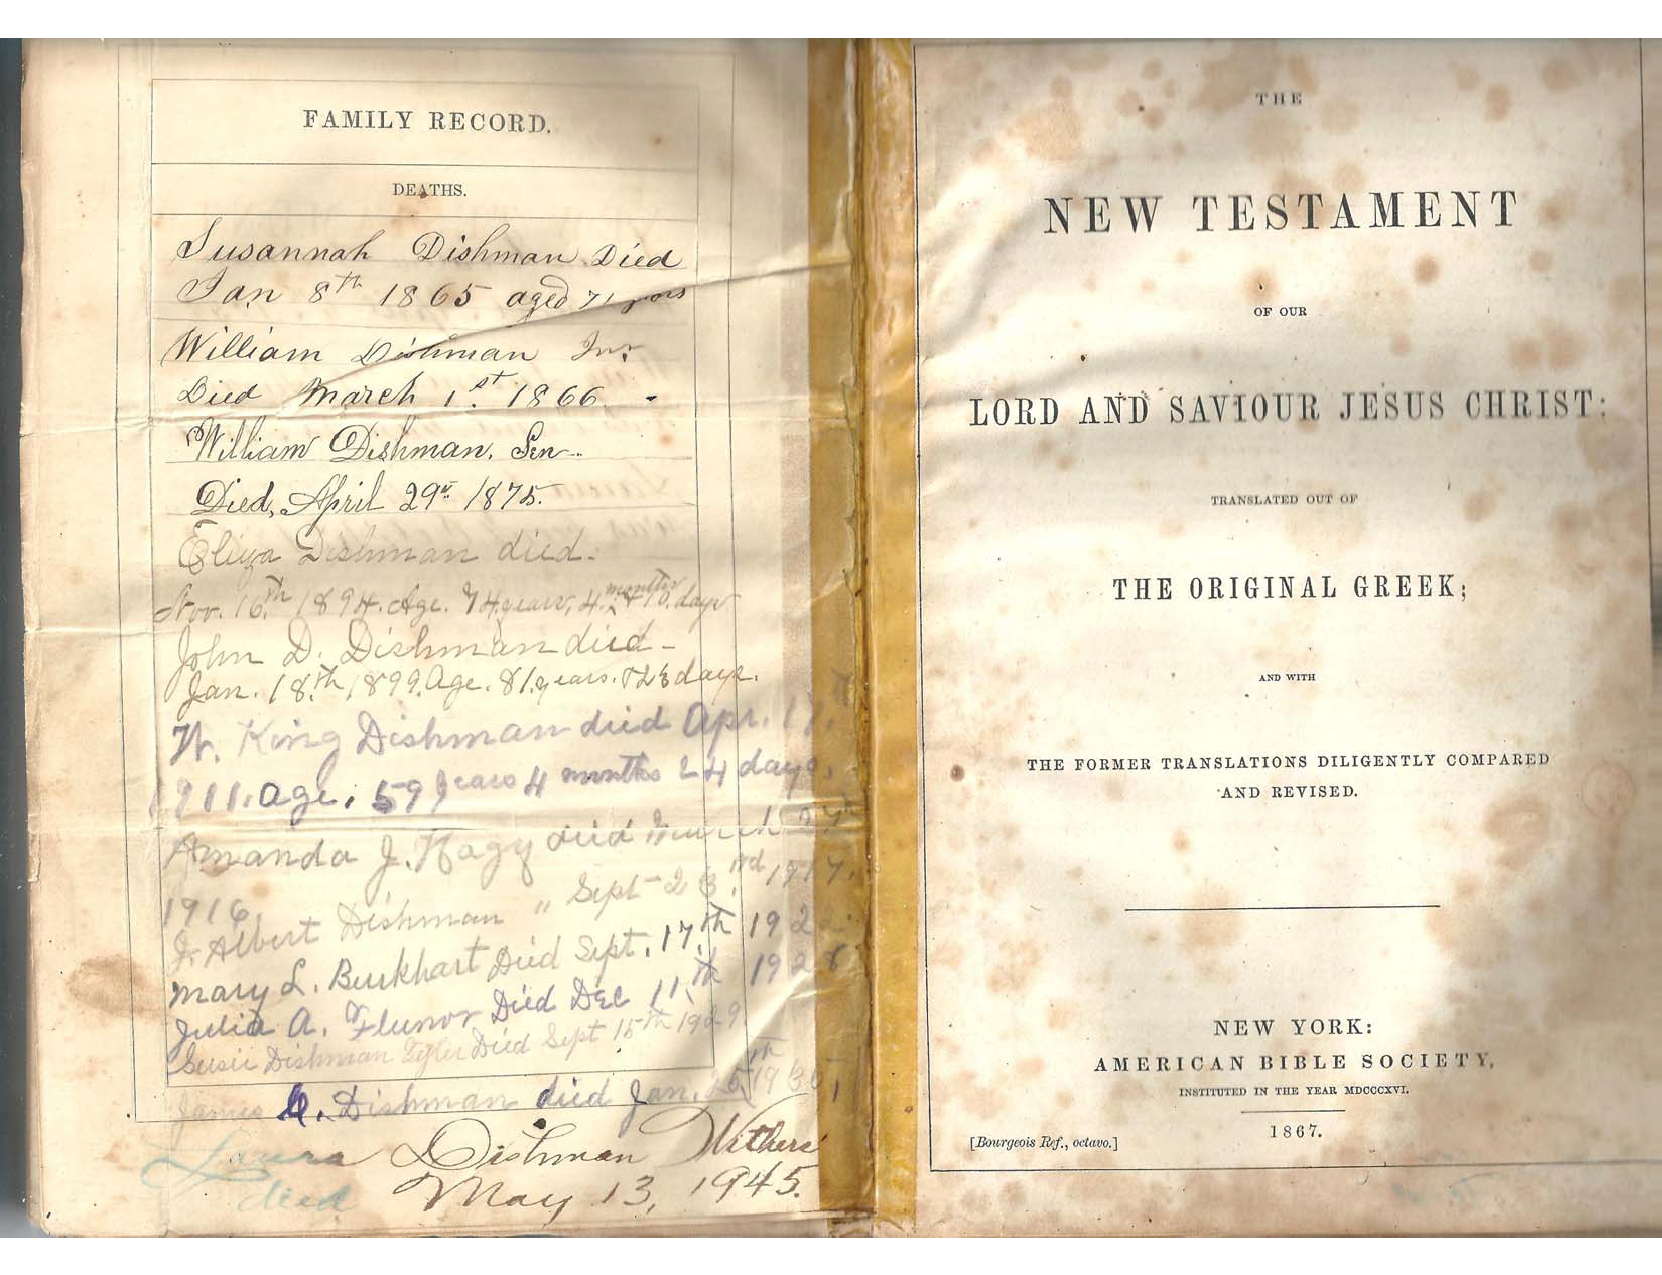 FAMILY RECORD.
DEATHS.
Susannah Dishman Died
Jan 8th 1865 aged 71 years
William Dishman Jnr
Died March 1st. 1866.
William Dishman, Sen..
Died, April 29th 1875.
Eliza Dishman died.
Nov. 16th 1894. Age. 74 years, 4 months & 10 days
John D. Dishman died -
Jan. 18th 1899. Age. 81 years. & 23 days.
W. King Dishman died Apr. 17.
1911. age. 59 years 4 months 24 days.
Amanda J. Hagy died March
1916.
J. Albert Dishman " Sept - 23rd 1917.
Mary L. Burkhart Died Sept. 17th 1922.
Julia A. Died Dec 11th 1928
Susie Dishman Tyler Died Sept 15th 1929
James Dishman died Jan.
Laura Dishman Withers
died May 13, 1945.
THE
NEW TESTAMENT
OF OUR
LORD AND SAVIOUR JESUS CHRIST:
TRANSLATED OUT OF
THE ORIGINAL GREEK;
AND WITH
THE FORMER TRANSLATIONS DILIGENTLY COMPARED
AND REVISED.
NEW YORK:
AMERICAN BIBLE SOCIETY,
INSTITUTED IN THE YEAR MDCCCXVI.
1867.
[Bourgeois Ref., octavo.]